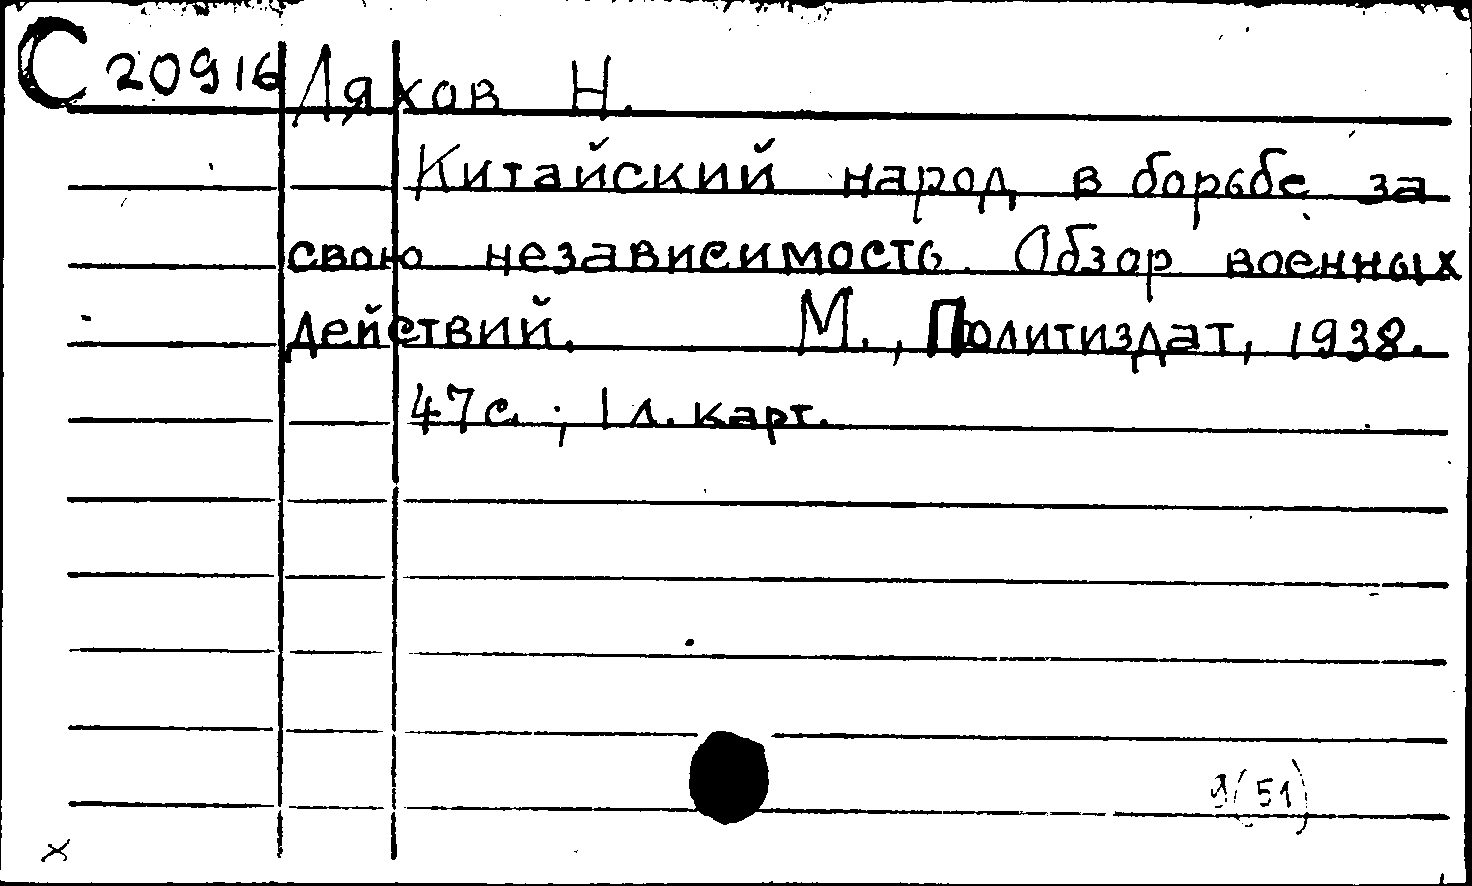 С 20916 Ляхов Н.
Китайский народ в борьбе за
свою независимость. Обзор военных
действий. М., Политиздат, 1938.
47 с.; 1 л. карт.
9(51)
х